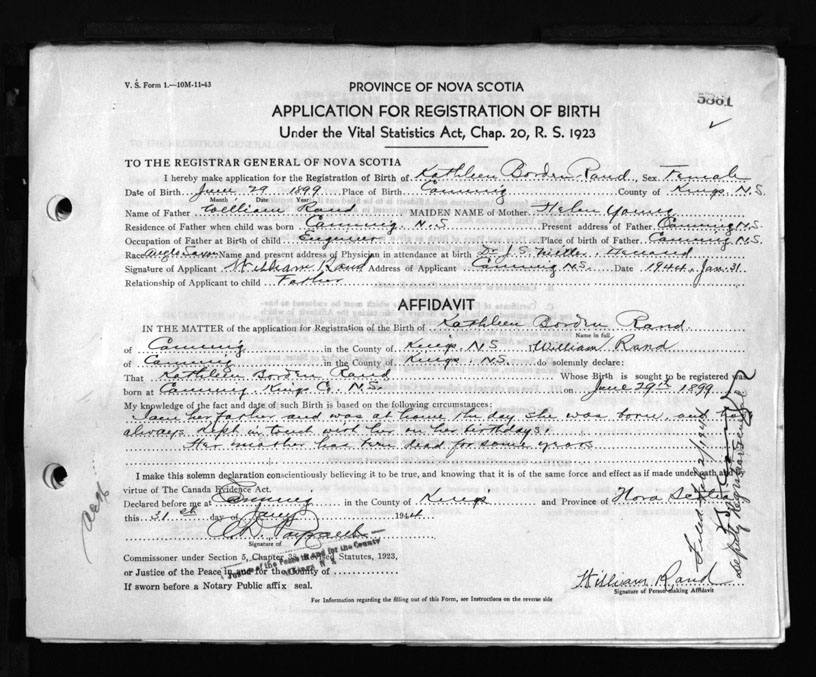 V. S. Form 1.—10M-11-43
PROVINCE OF NOVA SCOTIA
5861
APPLICATION FOR REGISTRATION OF BIRTH
Under the Vital Statistics Act, Chap. 20, R. S. 1923
TO THE REGISTRAR GENERAL OF NOVA SCOTIA
I hereby make application for the Registration of Birth of Kathleen Borden Rand, Sex Female
Date of Birth June 29 1899 Place of Birth Canning County of Kings N.S.
Month Date Year
Name of Father William Rand MAIDEN NAME of Mother Helen Young
Residence of Father when child was born Canning, N.S Present address of Father Canning N.S.
Occupation of Father at Birth of child Engineer Place of birth of Father Canning N.S.
Race Anglo Saxon Name and present address of Physician in attendance at birth Dr J. S. Miller
Signature of Applicant William Rand Address of Applicant Canning N.S. Date 1944, Jan. 31
Relationship of Applicant to child Father
AFFIDAVIT
IN THE MATTER of the application for Registration of the Birth of Kathleen Borden Rand
Name in full
of Canning in the County of Kings, N.S I William Rand
of Canning in the County of Kings, N.S. do solemnly declare:
That Kathleen Borden Rand Whose Birth is sought to be registered was
born at Canning Kings Co. N.S. on June 29th 1899
My knowledge of the fact and date of such Birth is based on the following circumstances:
I am her father and was at home the day she was born, and have
always kept in touch with her on her birthdays.
Her mother has been dead for some years
I make this solemn declaration conscientiously believing it to be true, and knowing that it is of the same force and effect as if made under oath and by
virtue of The Canada Evidence Act.
Declared before me at Canning in the County of Kings and Province of Nova Scotia
this 31st day of Jany 1944
Signature of
Commissioner under Section 5, Chapter 38, Revised Statutes, 1923,
or Justice of the Peace in and for the County of
Justice of the Peace in and for the County
of Kings, N. S.
If sworn before a Notary Public affix seal.
William Rand
Signature of Person making Affidavit
For Information regarding the filling out of this Form, see Instructions on the reverse side
Deputy Registrar General